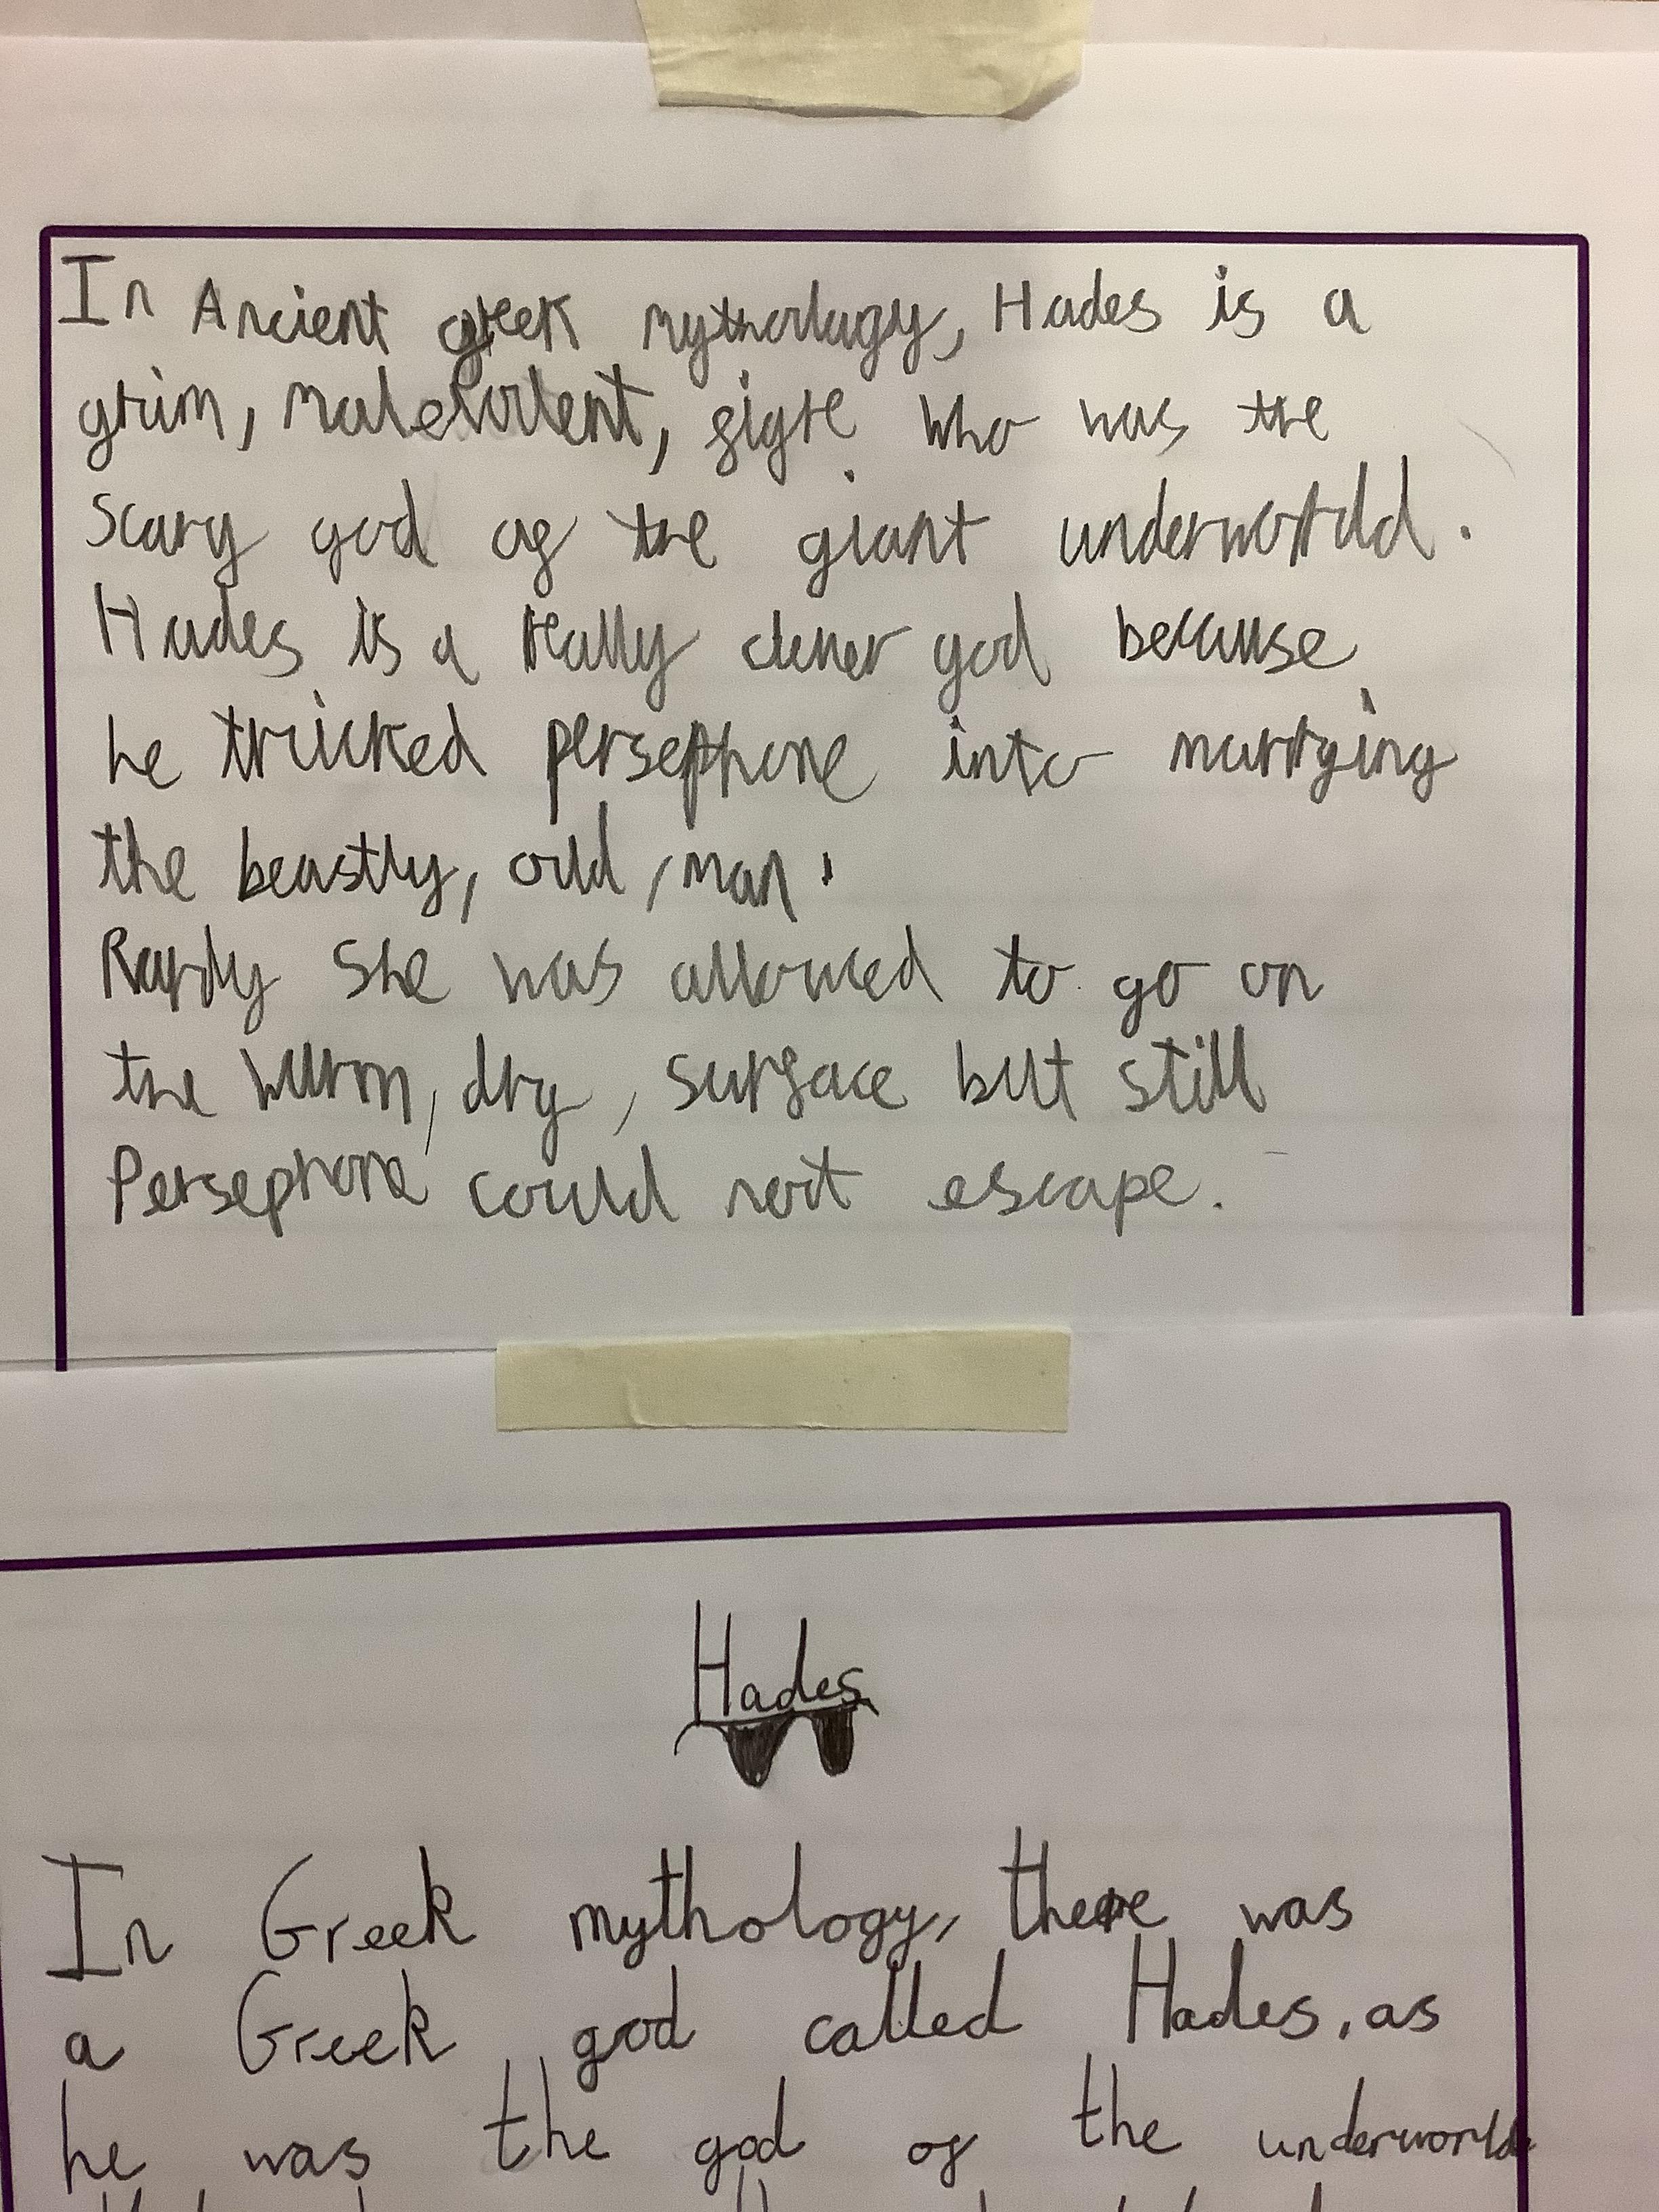 In Ancient greek mythology, Hades is a
grim, malevolent, figre who was the
scary god of the giant underworld.
Hades is a really clever god because
he tricked persephone into marrying
the beastly, old, man.
Rardy she was allowed to go on
the warm, dry, surface but still
Persephone could not escape.
Hades
In Greek mythology, there was
a Greek god called Hades, as
he was the god of the underworld